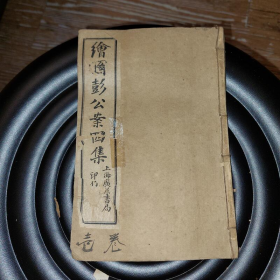 繪圖彭公案四集
上海廣益書局
印行
壹卷